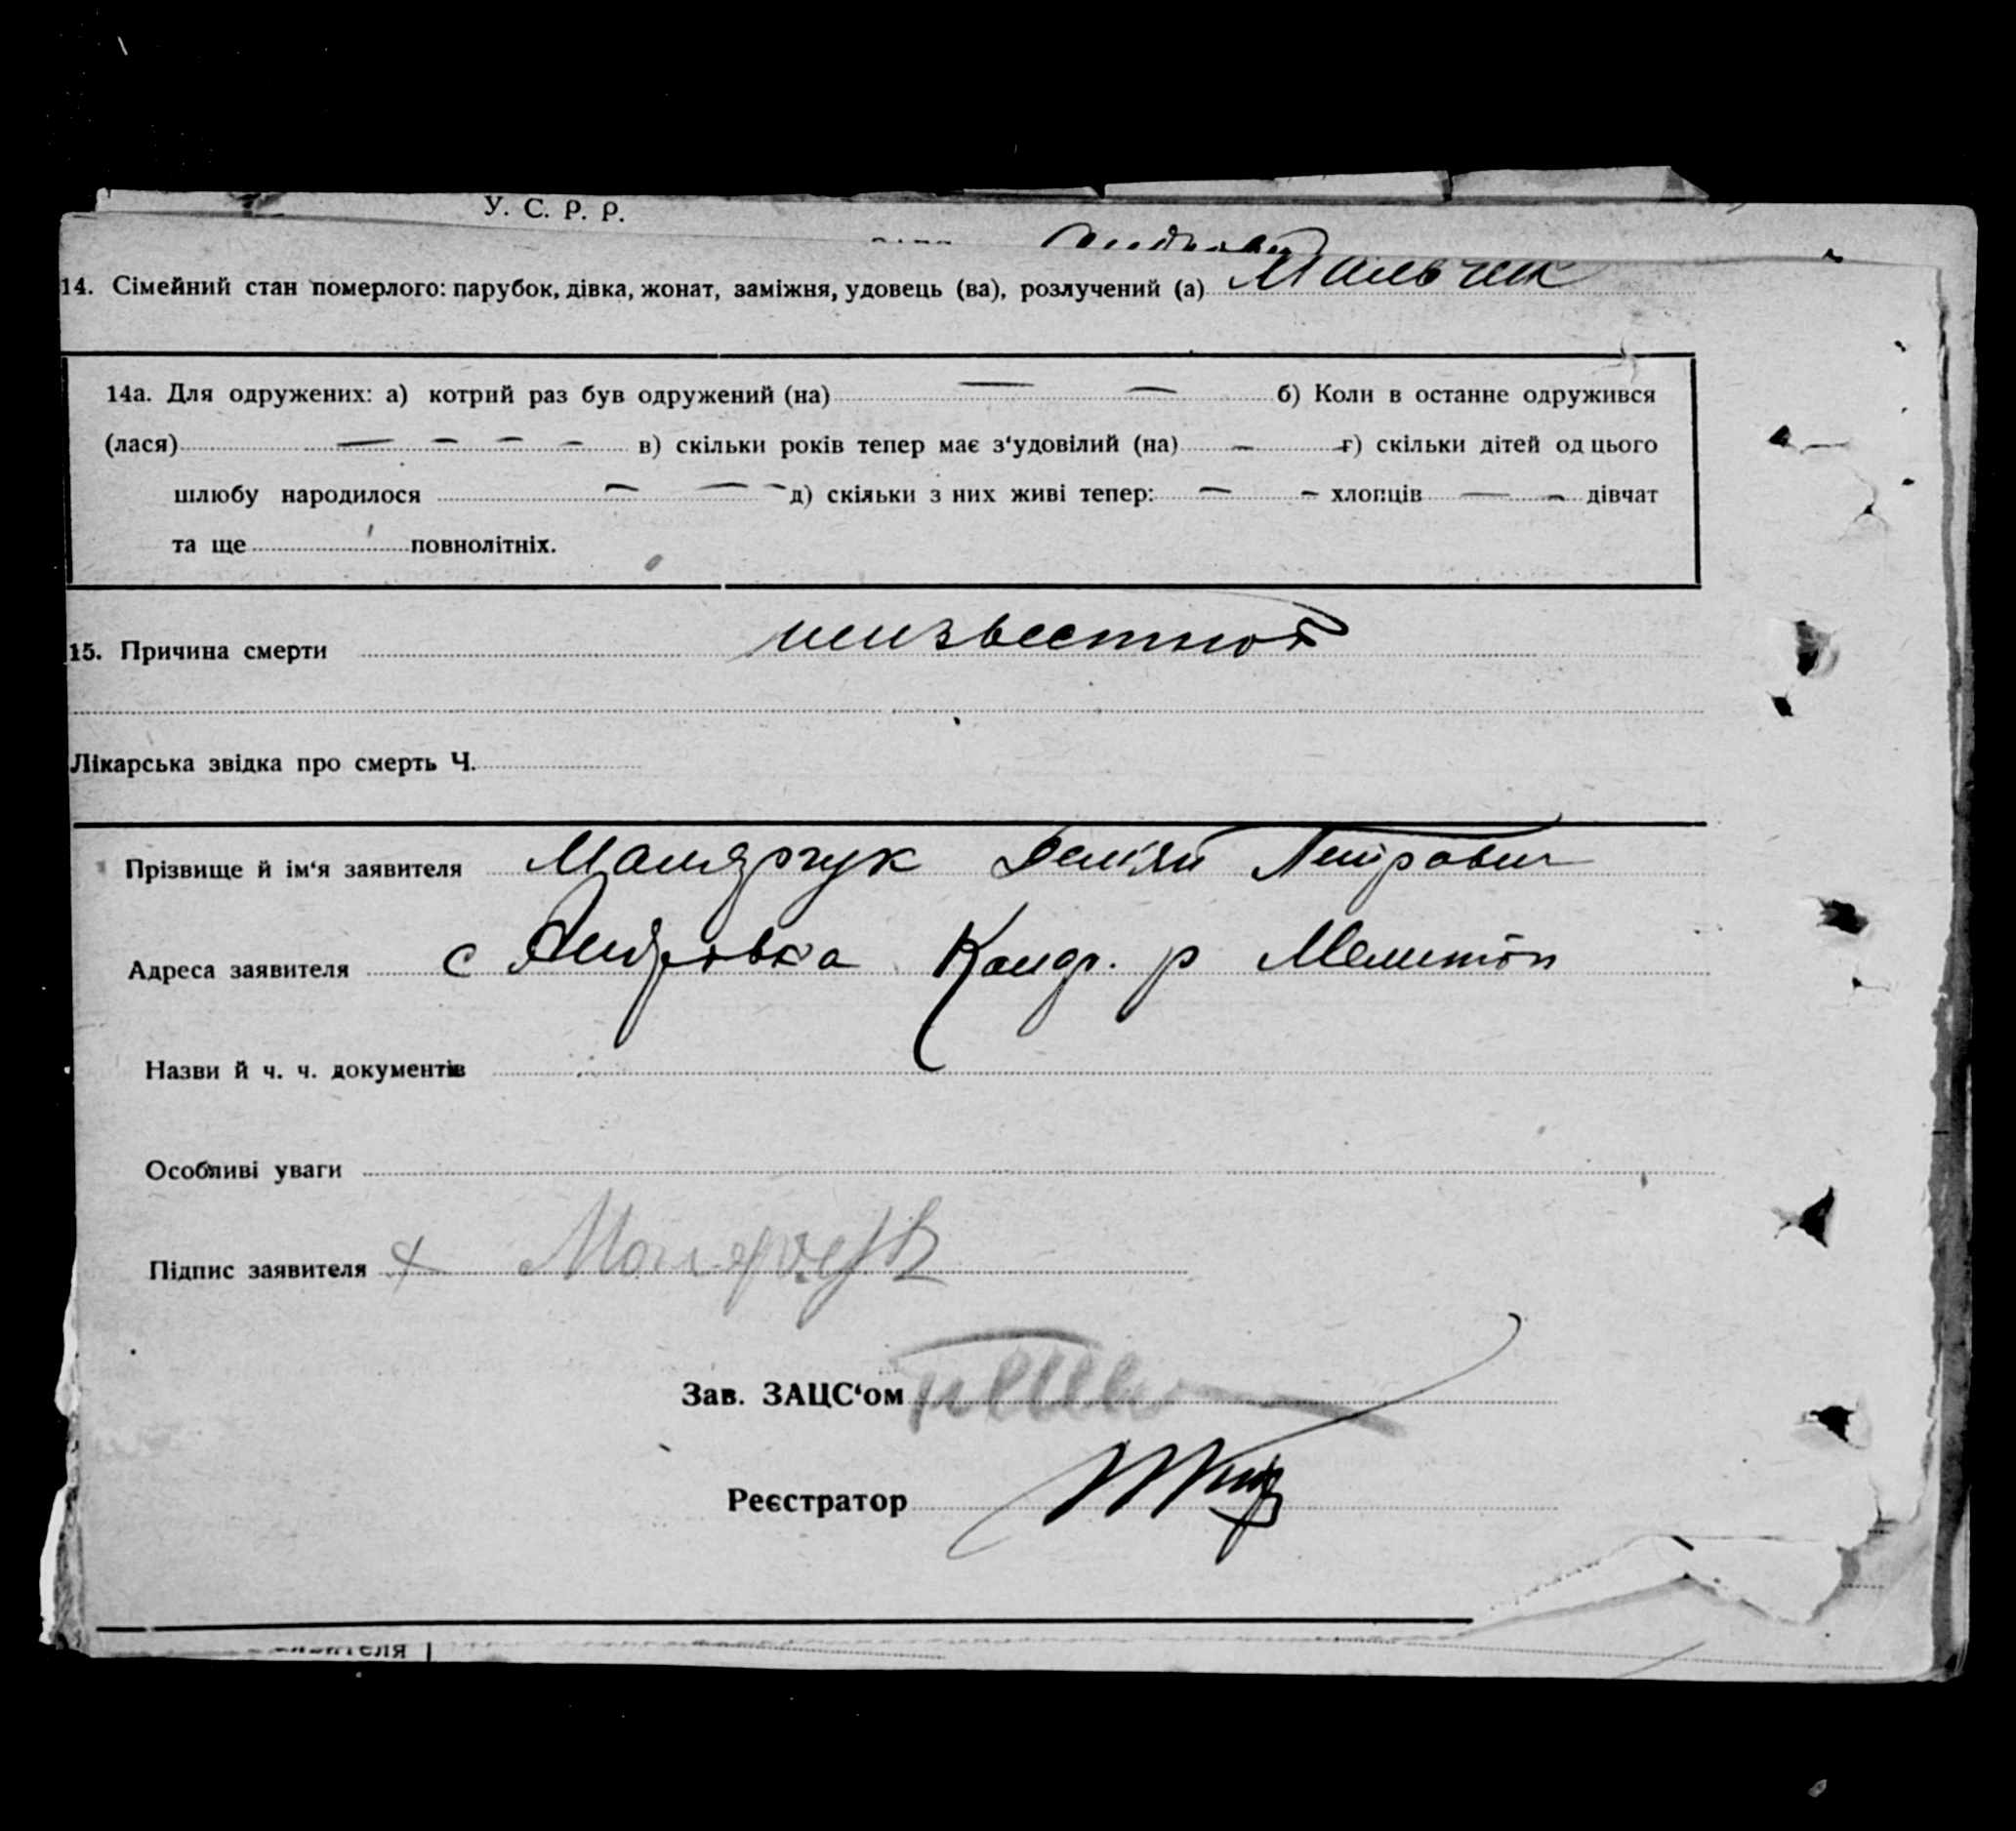 У. С. Р. Р.
14. Сімейний стан померлого: парубок, дівка, жонат, заміжня, удовець (ва), розлучений (а) Мальчик
14а. Для одружених: а) котрий раз був одружений (на) — — б) Коли в останнє одружився
(лася) — — — — в) скільки років тепер має з‘удовілий (на) — г) скільки дітей од цього
шлюбу народилося — — — д) скільки з них живі тепер: — — хлопців — — дівчат
та ще повнолітніх.
15. Причина смерти неизвестной
Лікарська звідка про смерть Ч.
Прізвище й ім‘я заявителя Малярчук Петрович
Адреса заявителя с Кандр. р Мелитоп
Назви й ч. ч. документів
Особливі уваги
Підпис заявителя Малярчук
Зав. ЗАЦС‘ом
Реєстратор